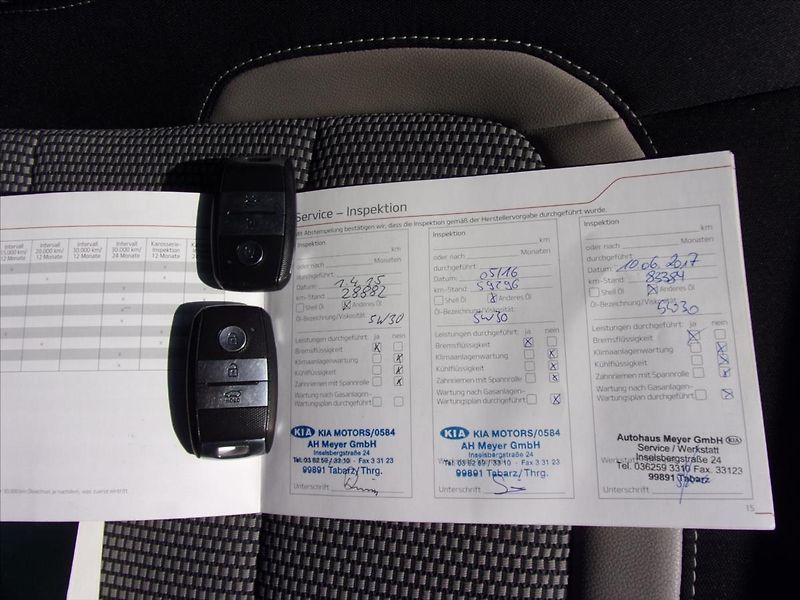 Service – Inspektion
Mit Abstempelung bestätigen wir, dass die Inspektion gemäß der Herstellervorgabe durchgeführt wurde.
Intervall
20.000 km/
12 Monate
Intervall
30.000 km/
12 Monate
Intervall
30.000 km/
24 Monate
Karosserie-
Inspektion
12 Monate
Inspektion
km
oder nach Monaten
durchgeführt
Datum: 1.4.15
km-Stand: 28882
Shell Öl Anderes Öl
Öl-Bezeichnung/Viskosität
5W30
Leistungen durchgeführt: ja nein
Bremsflüssigkeit
Klimaanlagenwartung
Kühlflüssigkeit
Zahnriemen mit Spannrolle
Wartung nach Gasanlagen-
Wartungsplan durchgeführt
KIA KIA MOTORS/0584
AH Meyer GmbH
Inselsbergstraße 24
Tel. 03 62 59 / 33 10 - Fax 3 31 23
99891 Tabarz/Thrg.
Unterschrift
Inspektion
km
oder nach Monaten
durchgeführt:
Datum: 05/16
km-Stand: 59296
Shell Öl Anderes Öl
Öl-Bezeichnung/Viskosität
5W30
Leistungen durchgeführt: ja nein
Bremsflüssigkeit
Klimaanlagenwartung
Kühlflüssigkeit
Zahnriemen mit Spannrolle
Wartung nach Gasanlagen-
Wartungsplan durchgeführt
KIA KIA MOTORS/0584
AH Meyer GmbH
Inselsbergstraße 24
Tel. 03 62 59 / 33 10 - Fax 3 31 23
99891 Tabarz/Thrg.
Unterschrift
Inspektion
km
oder nach Monaten
durchgeführt:
Datum: 10.06.2017
km-Stand: 83384
Shell Öl Anderes Öl
Öl-Bezeichnung/Viskosität
5W30
Leistungen durchgeführt: ja nein
Bremsflüssigkeit
Klimaanlagenwartung
Kühlflüssigkeit
Zahnriemen mit Spannrolle
Wartung nach Gasanlagen-
Wartungsplan durchgeführt
Autohaus Meyer GmbH KIA
Service / Werkstatt
Inselsbergstraße 24
Tel. 036259 3310 Fax. 33123
99891 Tabarz
Unterschrift
15